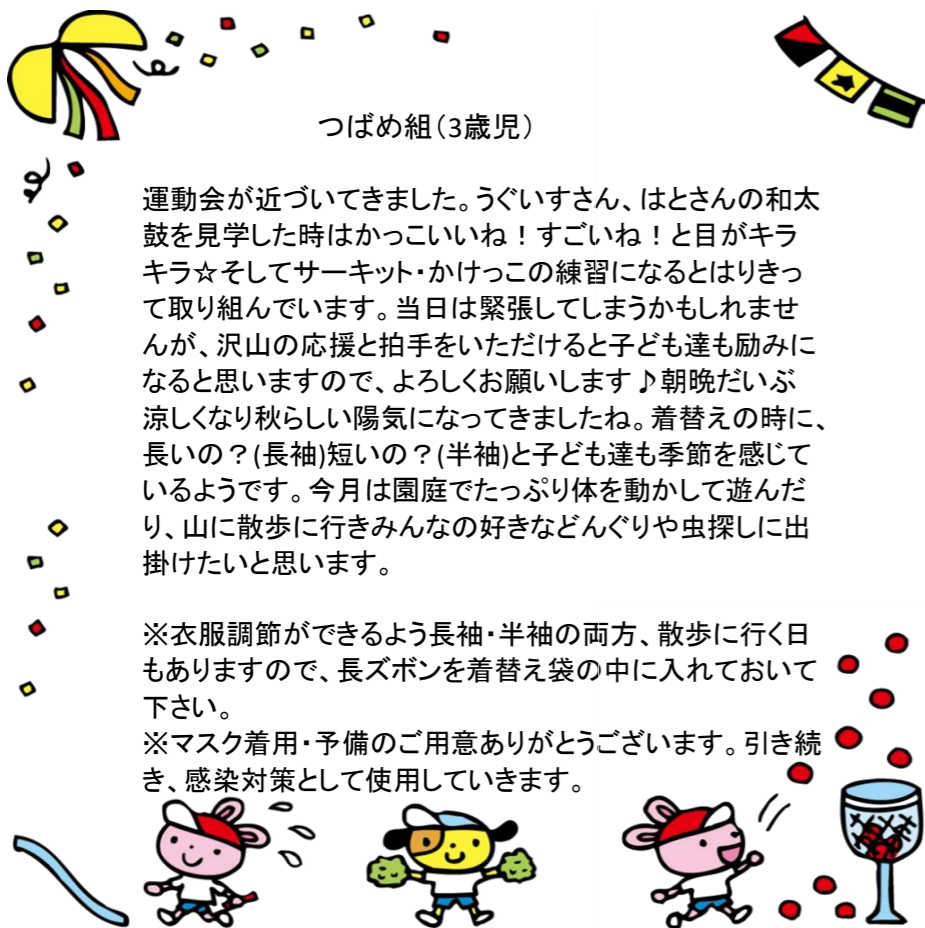 つばめ組(3歳児)
運動会が近づいてきました。うぐいすさん、はとさんの和太
鼓を見学した時はかっこいいね！すごいね！と目がキラ
キラ☆そしてサーキット・かけっこの練習になるとはりきっ
て取り組んでいます。当日は緊張してしまうかもしれませ
んが、沢山の応援と拍手をいただけると子ども達も励みに
なると思いますので、よろしくお願いします♪朝晩だいぶ
涼しくなり秋らしい陽気になってきましたね。着替えの時に、
長いの？(長袖)短いの？(半袖)と子ども達も季節を感じて
いるようです。今月は園庭でたっぷり体を動かして遊んだ
り、山に散歩に行きみんなの好きなどんぐりや虫探しに出
掛けたいと思います。
※衣服調節ができるよう長袖・半袖の両方、散歩に行く日
もありますので、長ズボンを着替え袋の中に入れておいて
下さい。
※マスク着用・予備のご用意ありがとうございます。引き続
き、感染対策として使用していきます。